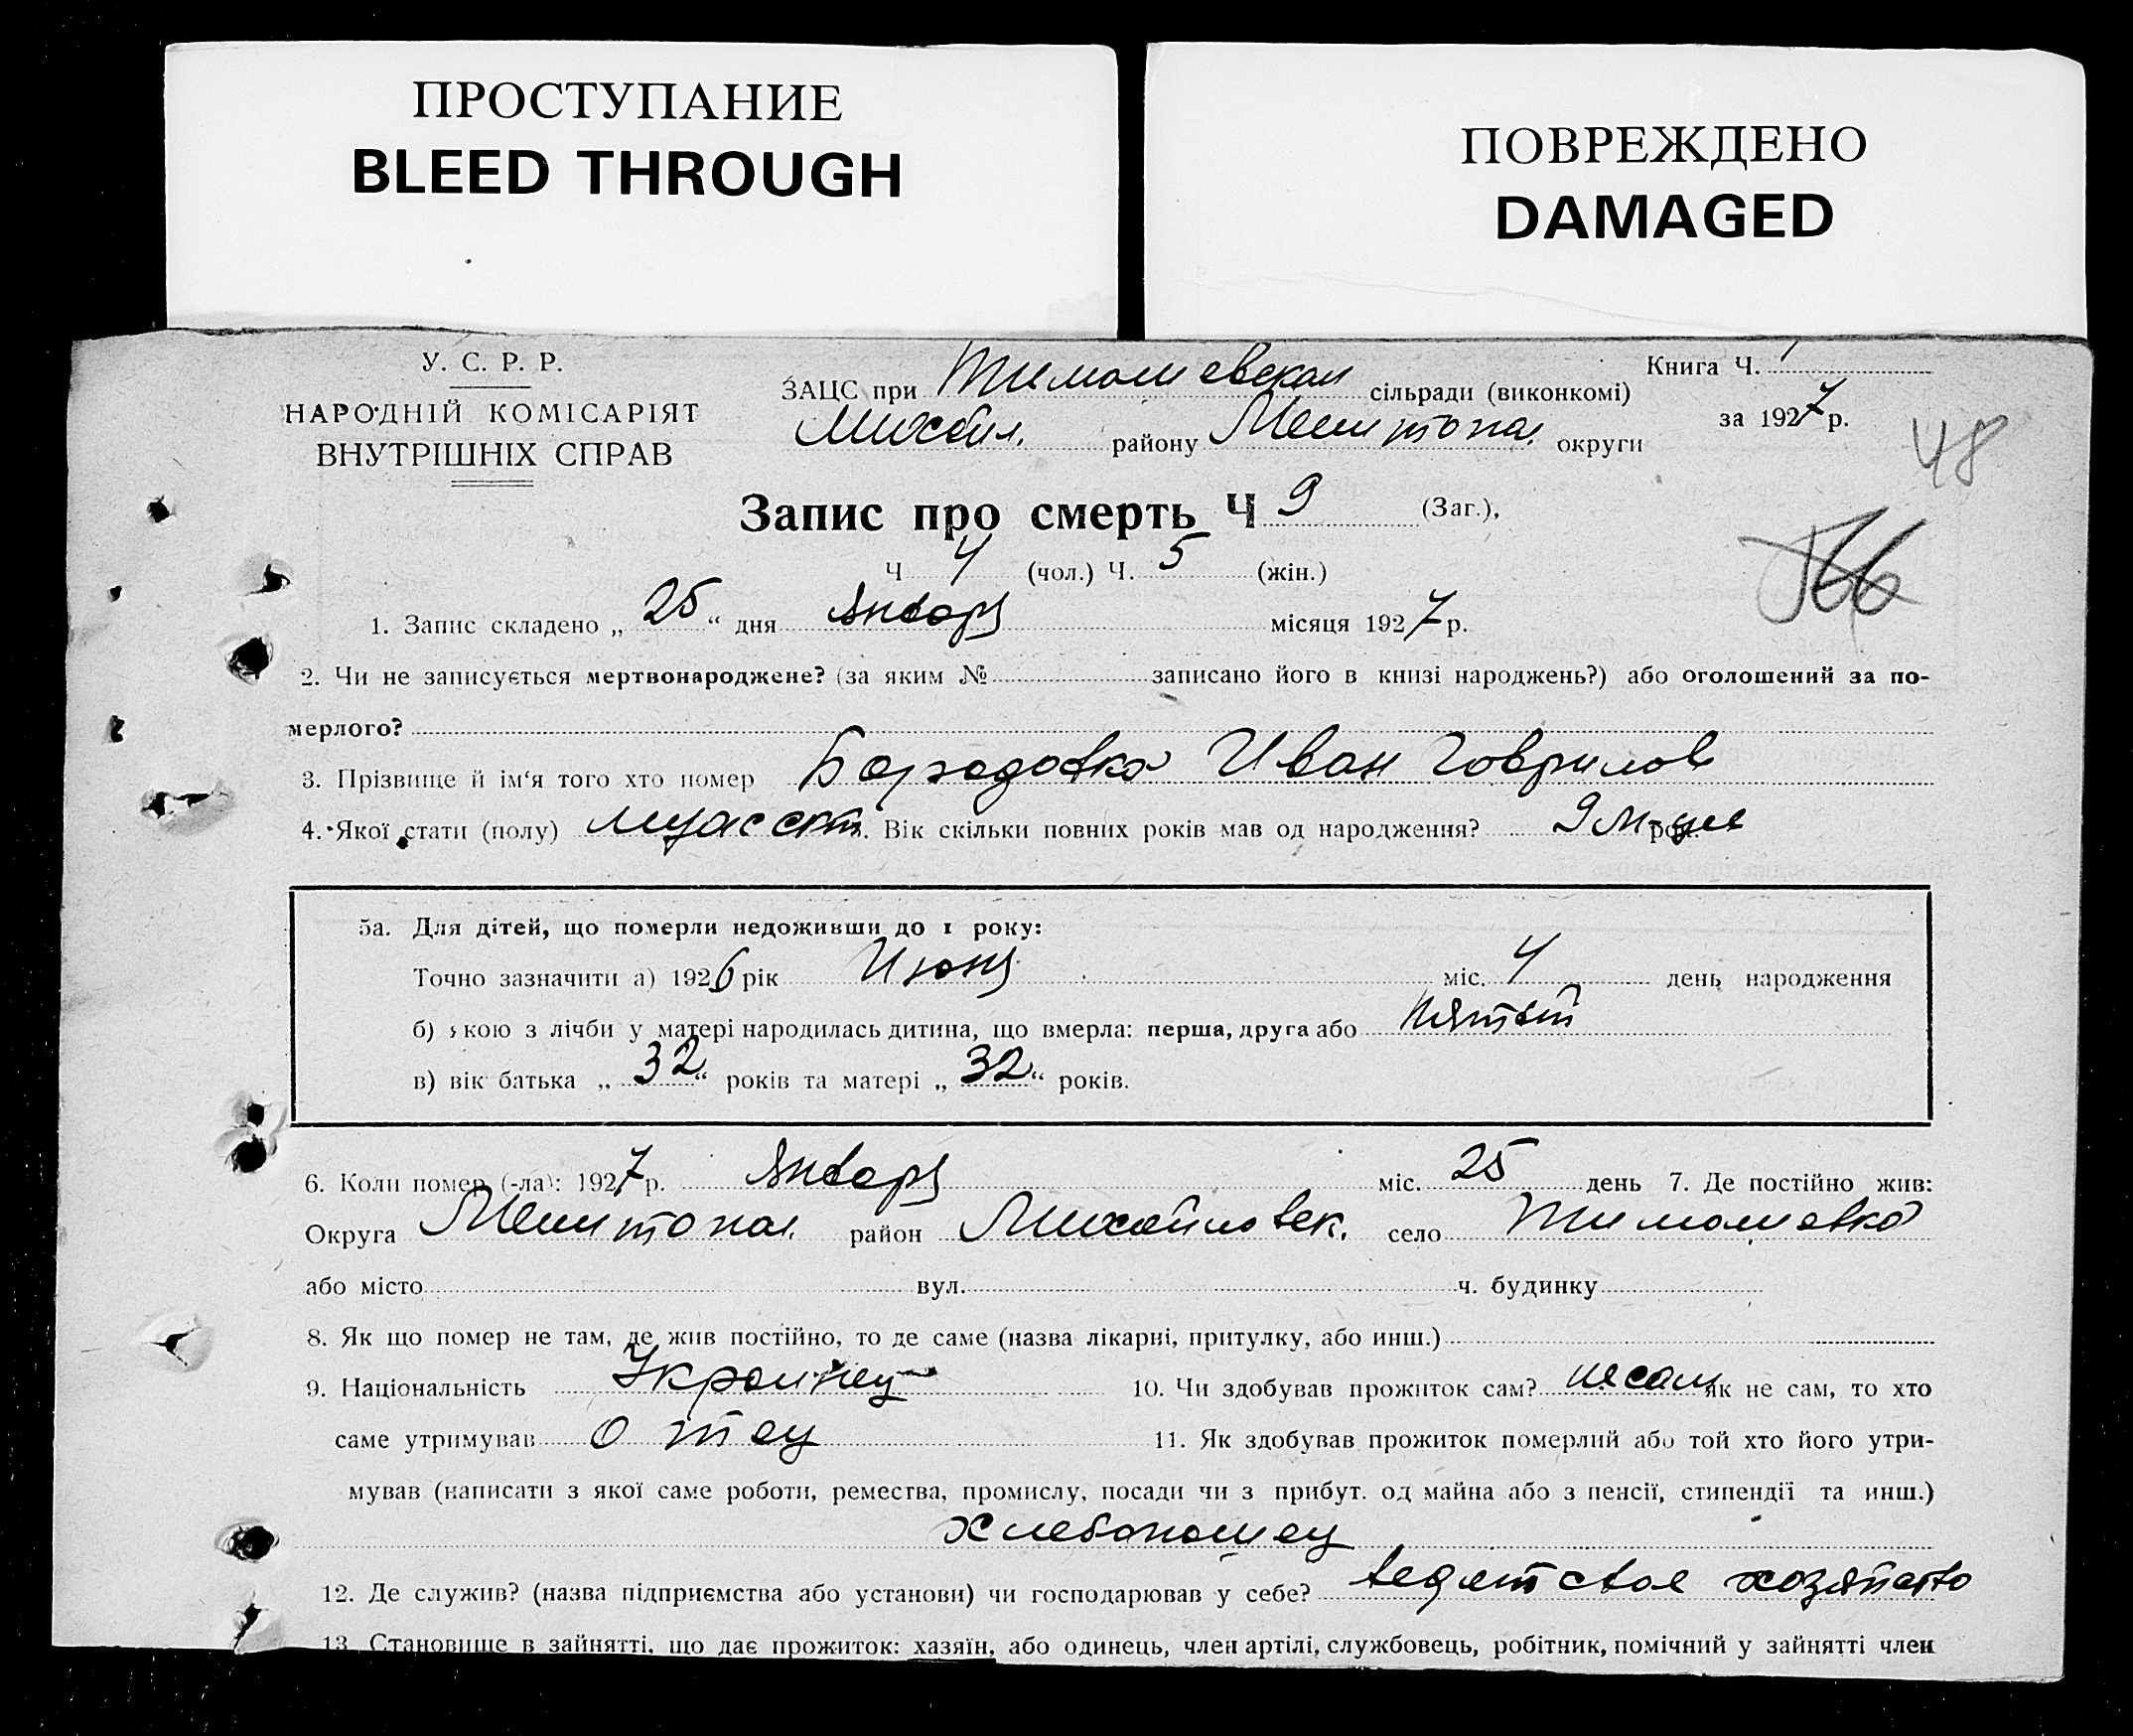 ПРОСТУПАНИЕ
BLEED THROUGH
ПОВРЕЖДЕНО
DAMAGED
У. С. Р. Р.
НАРОДНІЙ КОМІСАРІЯТ
ВНУТРІШНІХ СПРАВ
ЗАЦС при Тимошевской сільради (виконкомі)
Михайл. району Мелитопол. округи
Книга Ч. 1
за 1927 р.
48
Запис про смерть Ч 9 (Заг.),
Ч 4 (чол.) Ч. 5 (жін.)
1. Запис складено „ 25 “ дня Января місяця 1927 р.
2. Чи не записується мертвонароджене? (за яким № записано його в книзі народжень?) або оголошений за по-
мерлого?
3. Прізвище й ім‘я того хто помер Бородовка Иван Гаврилов
4. Якої стати (полу) мужск. Вік скільки повних років мав од народження? 9 м-цев рок.
5а. Для дітей, що померли недоживши до 1 року:
Точно зазначити а) 1926 рік Июня міс. 4 день народження
б) якою з лічби у матері народилась дитина, що вмерла: перша, друга або пятый
в) вік батька „ 32 “ років та матері „ 32 “ років.
6. Коли помер (-ла): 1927 р. Января міс. 25 день 7. Де постійно жив:
Округа Мелитопол. район Михайловск. село Тимошовка
або місто вул. ч. будинку
8. Як що помер не там, де жив постійно, то де саме (назва лікарні, притулку, або инш.)
9. Національність Украинец 10. Чи здобував прожиток сам? не сам як не сам, то хто
саме утримував отец 11. Як здобував прожиток померлий або той хто його утри-
мував (написати з якої саме роботи, ремества, промислу, посади чи з прибут. од майна або з пенсії, стипендії та инш.)
Хлебопашец
12. Де служив? (назва підприємства або установи) чи господарював у себе? ведет свое хозяйство
13. Становище в зайнятті, що дає прожиток: хазяїн, або одинець, член артілі, службовець, робітник, помічний у зайнятті член